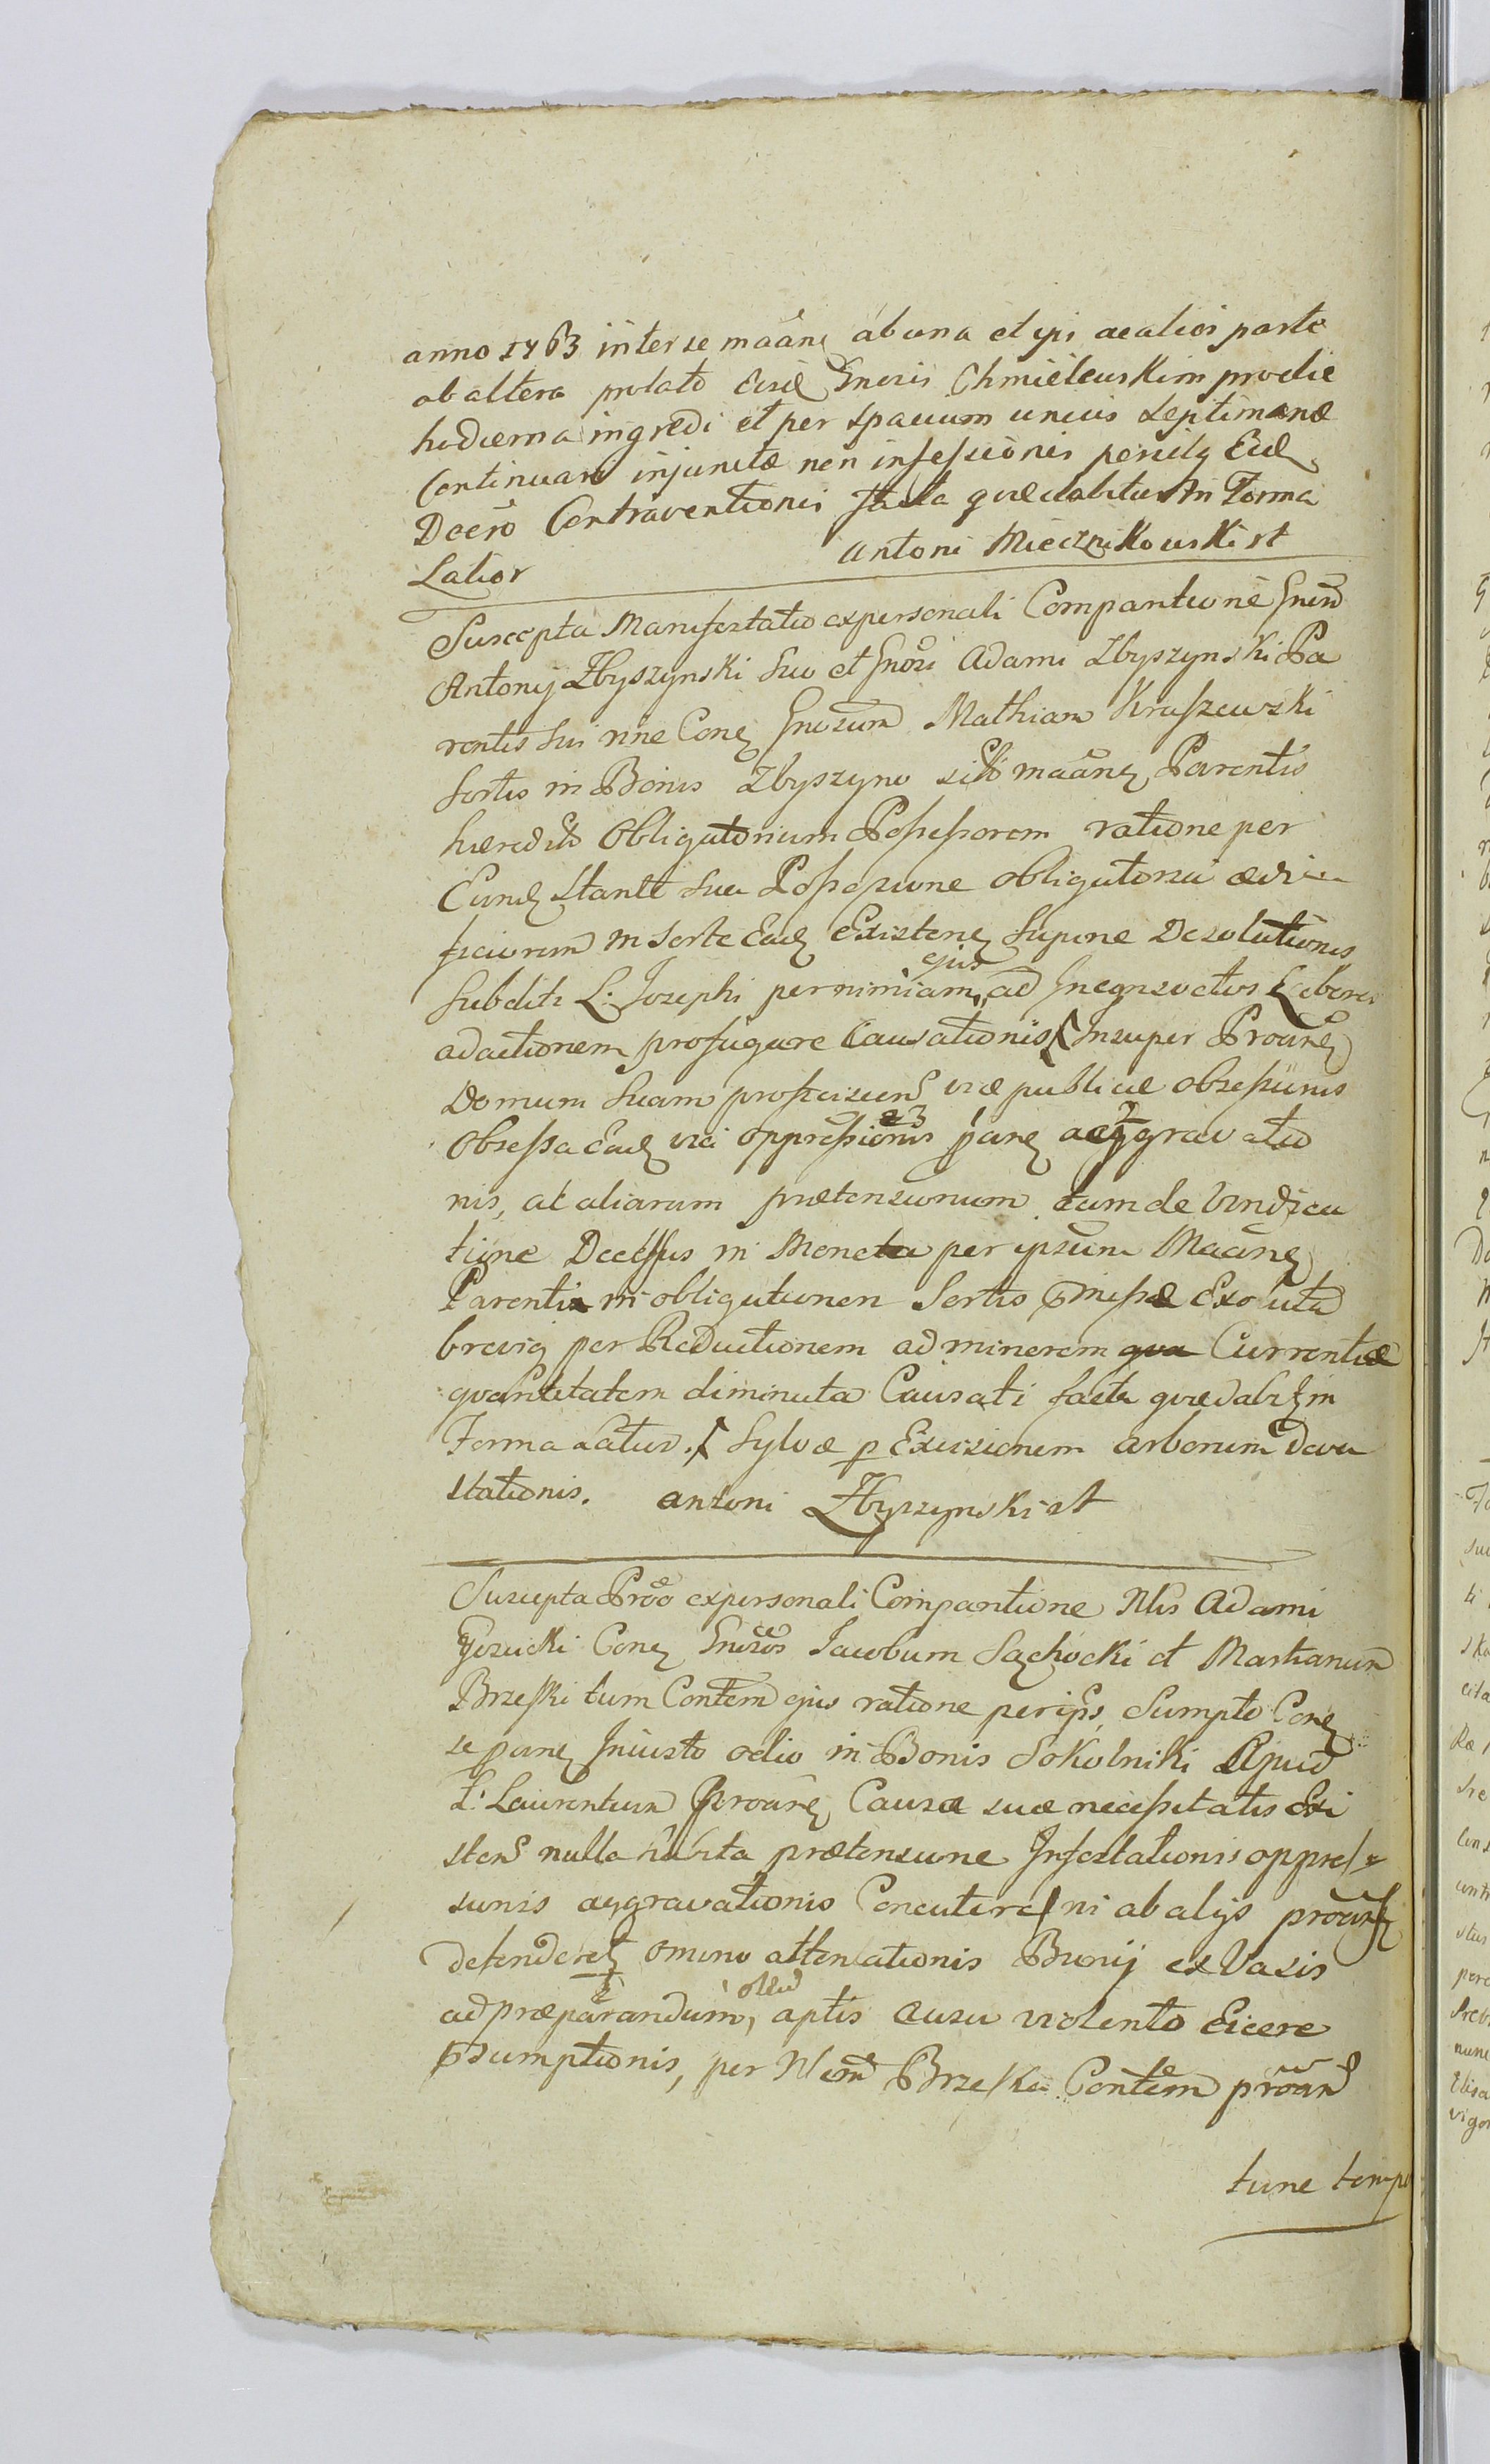 anno 1763 inter se maãne ab una et ipi ac alios parte
ab altera prolato Eisd Gneris Chmielewskim pro die
hodierna ingredi et per spatium unius septimanæ
Continuare injunctæ non infessionis Eid
Decro Contraventionis facta quæ dabitur In Forma
Latior Antoni Miecznikowski st
Suscepta Manifestatio ex personali Comparitione Gnesd
Antonij Zbyszynski suo et Gnosi Adami Zbyszynski Pa
rentis sui nine Cong Gnosum Mathiam Kraszewski
Sortis in Bonis Zbyszyno sibi maãne Parentis
hæredit Obligatorium Possessorem ratione per
Eund stante sua Possessione obligatoria ædi
ficiorum in sorte Ead Existene Supine Desolationis
Subditi L: Josephi per nimiam ejus ad Inconsvetos Labores
adactionem profugare Causationis Insuper Proane
Domum Suam proficiscend viæ publicæ obsessionis
Obsessa Ead via oppressionis pane aggravatio
nis, at aliarum prætensionum tum de Vindica
tione Decessus in Moneta per ipsum Maane
Parenti in obligationem Sortis pmissæ Exoluta
brevig per Reductionem ad minorem Currentiæ
quantitatem diminuta Causati facta quæ dabit in
Forma Latior. Sylvæ p Excisionem arborum Deva
stationis. Antoni Zbyszynski st
Suscepta Proõ ex personali Comparitione Nlis Adami
Gozicki Cone Gnosos Jacobum Sąchocki et Martianum
Brzeski tum Contem ejus ratione per ips Sumpto Cone
se pane Iniusto odio in Bonis Sokolniki Apud
L: Laurentium Proane Causa suæ necessitatis Exi
stend nulla habita prætensione Infestationis oppres
sionis aggravationis Concutere ni ab alijs proane
defenderet omino attentationis ex Vasis
ad præparandum, aptis ausu violento Eicere
psumptionis, per Nlem Brzeska Contem proand
tunc temp